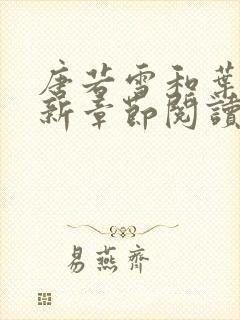 唐若雪和葉
新章節閱讀
易燕齊